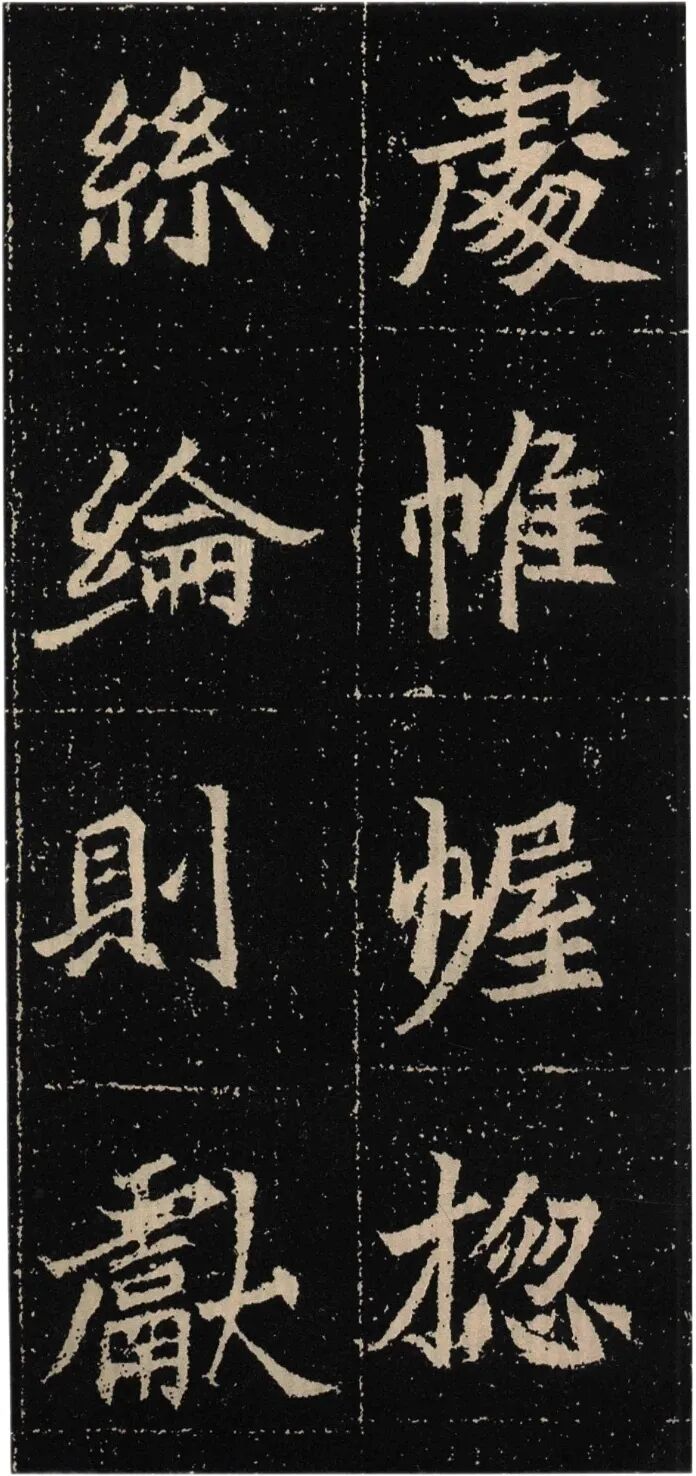 處帷幄揔
絲綸則獻